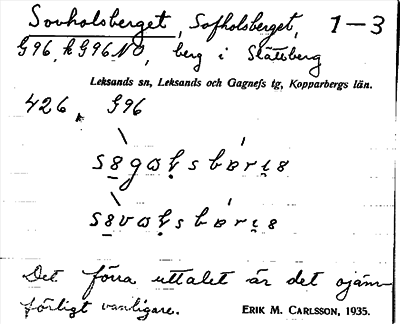 Sovholsberget, Sofholsberget, 1–3
G96, k G96 NO, berg i Slättberg
Leksands sn, Leksands och Gagnefs tg, Kopparbergs län.
426 G96
Det förra uttalet är det ojäm-
förligt vanligare. ERIK M. CARLSSON, 1935.